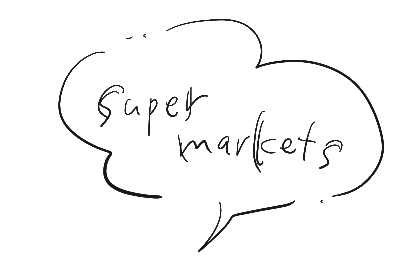 super
markets